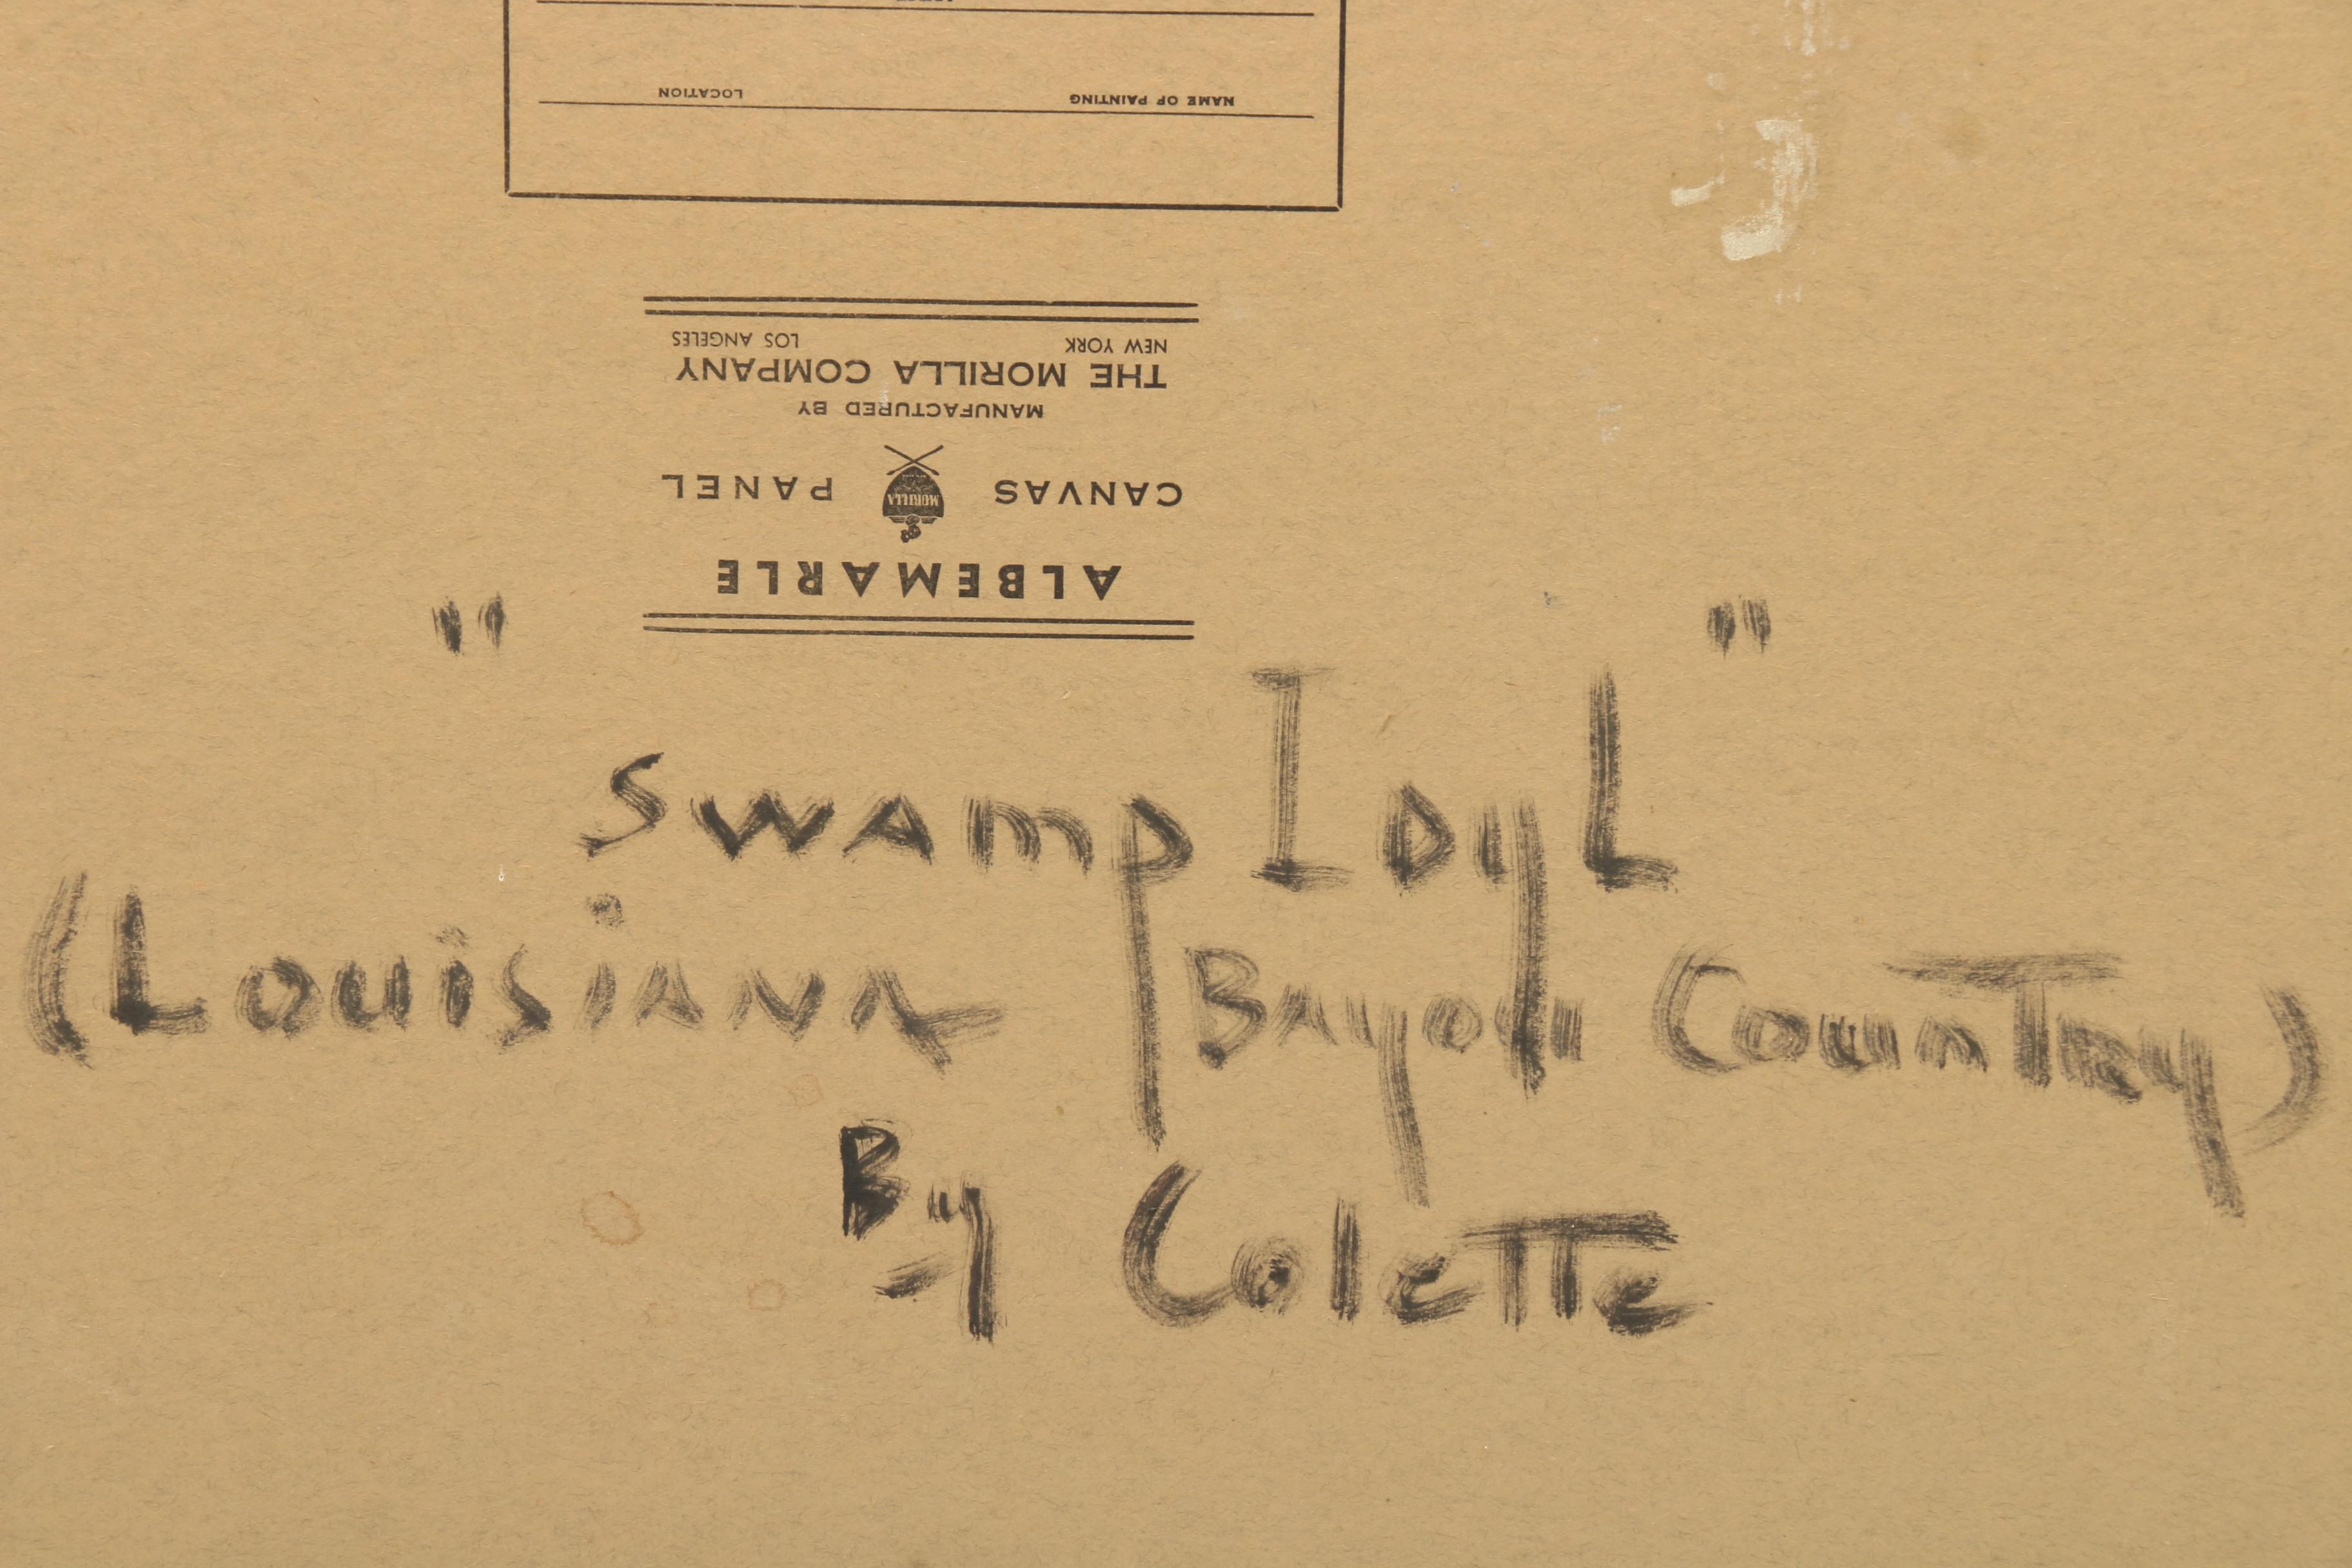 LOCATION NAME OF PAINTING
NEW YORK LOS ANGELES
THE MORILLA COMPANY
MANUFACTURED BY
CANVAS MORILLA PANEL
ALBEMARLE
"Swamp Idyl"
(Louisiana Bayou Country)
By Colette